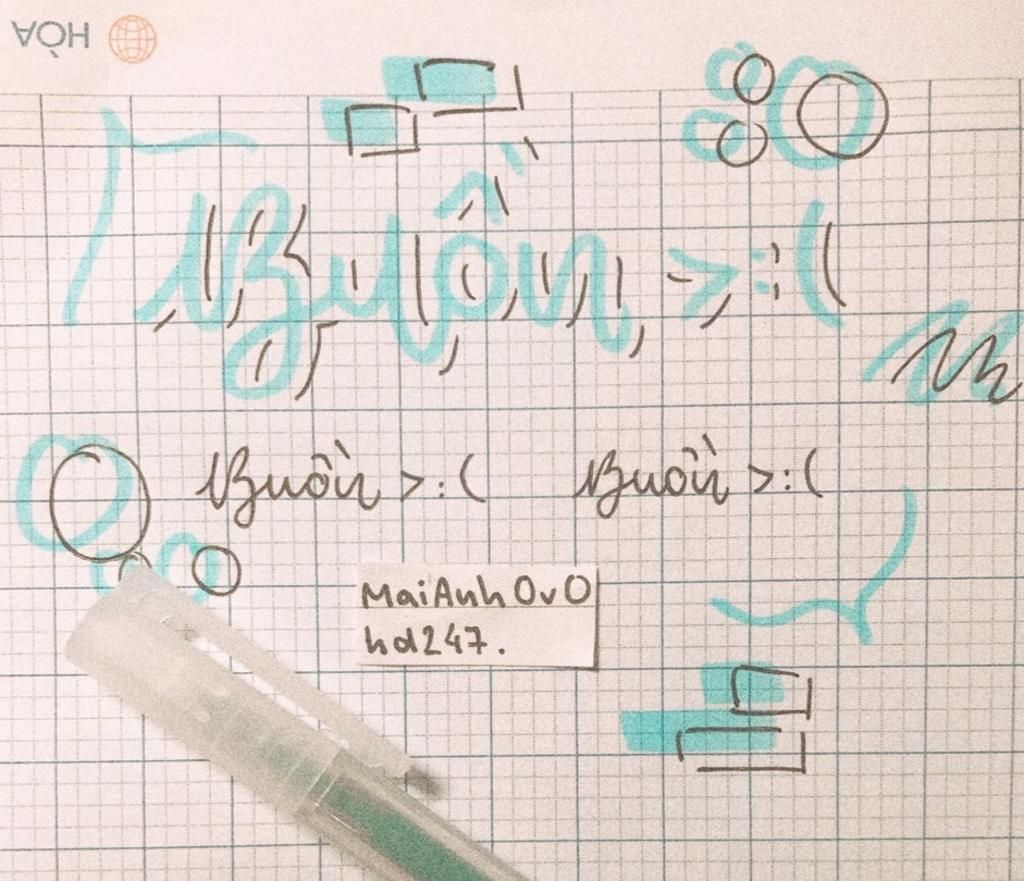 HÒA
Buồn >:(
Buồn >:( Buồn >:(
MaiAnh OvO
hd247.